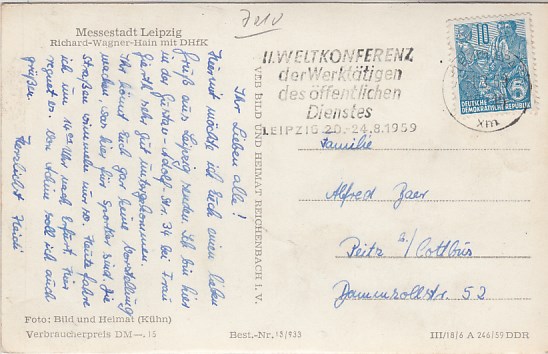 Messestadt Leipzig
Richard-Wagner-Hain mit DHfK
7210
II. WELTKONFERENZ
der Werktätigen
des öffentlichen
Dienstes
LEIPZIG 20.-24.8.1959
10
DEUTSCHE
DEMOKRATISCHE REPUBLIK
xm
Ihr Lieben alle!
Hiermit möchte ich Euch einen lieben
Gruß aus Leipzig senden. Ich bin hier
in der Gustav-Adolf-Str. 34 bei Frau
Gerth sehr gut untergekommen.
Ihr könnt Euch gar keine Vorstellung
machen, was hier für Sportler sind. Die
Straßen wimmeln nur so. Heute fahre
ich um 14 Uhr nach Erfurt. Hier
regnet es. Von Heine soll ich auch
grüßen.
Herzlichst Heidi
VEB BILD UND HEIMAT REICHENBACH I. V.
Familie
Alfred Baer
Peitz b/ Cottbus
Dammzollstr. 52
Foto: Bild und Heimat (Kühn)
Verbraucherpreis DM —.15
Best.-Nr. 13/933
III/18/6 A 246/59 DDR